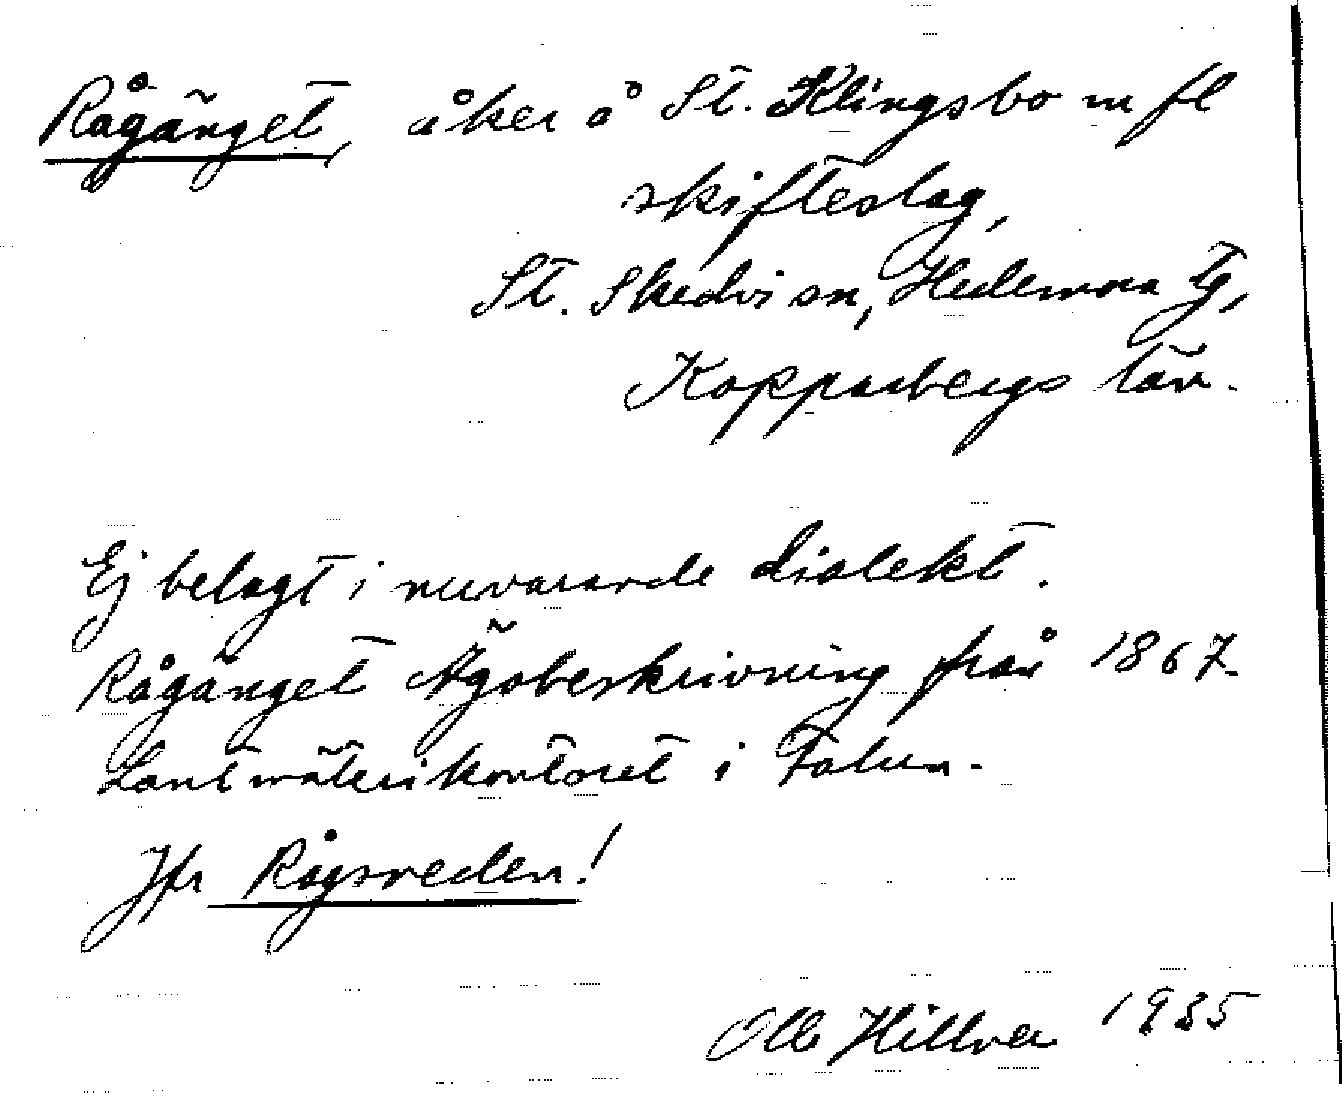 Rågänget, åker å St. Klingsbo m fl
skifteslag,
St. Skedvi sn, Hedemora tg,
Kopparbergs län.
Ej belagt i nuvarande dialekt.
Rågänget Ägobeskrivning från 1867.
Lantmäterikontoret i Falun.
Jfr Rågsveden!
Olle Hillver 1935